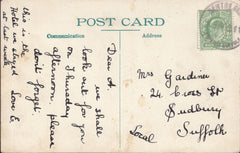 POST CARD
Communication
Address
Dear A
we shall
look out for you
on Thursday
afternoon please
don't forget
this is the
Hotel we stayed
at last week
Love E
Mrs Gardiner
24 Cross St
Sudbury
Suffolk
Local